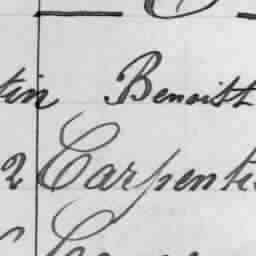 tin Benoist
2 Carpente